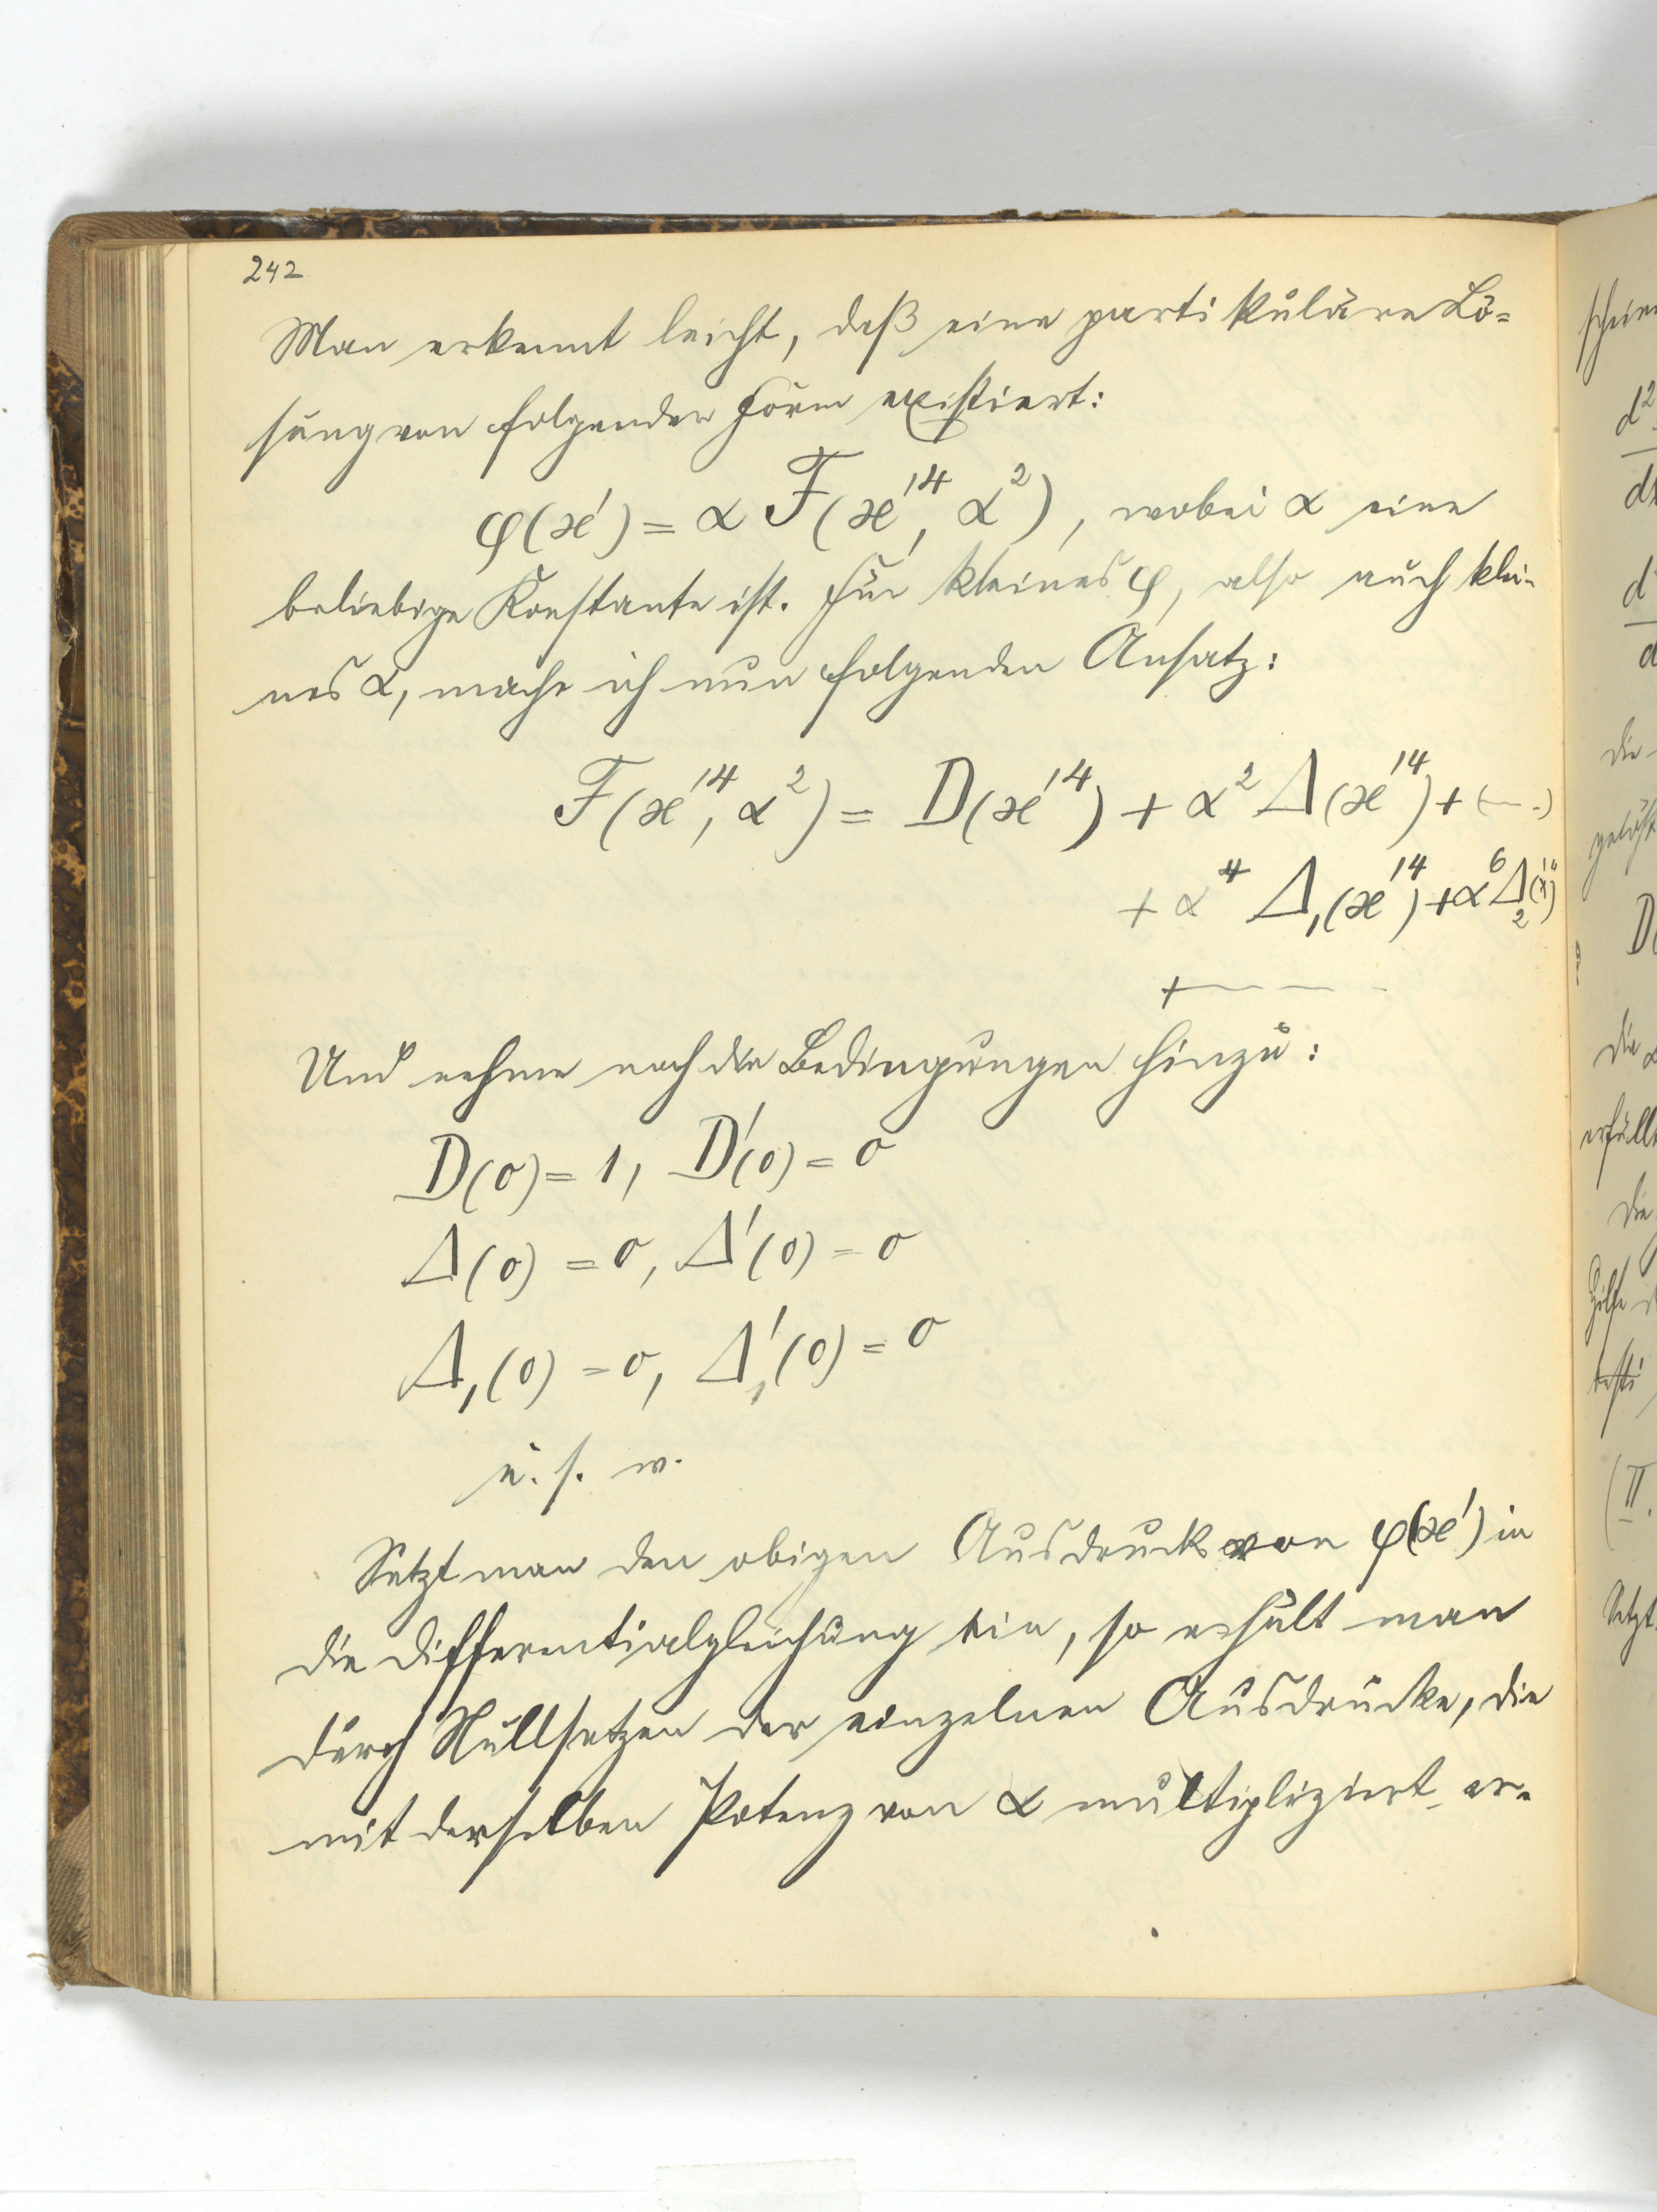 242
Man erkennt leicht, daß eine partikuläre Lö=
sung von folgender Form existiert:
φ(x') = α F(x'⁴, α²), wobei α eine
beliebige Konstante ist. Für kleines φ, also auch klei-
nes α, mache ich nun folgenden Ansatz:
F(x'⁴, α²) = D(x'⁴) + α² Δ(x'⁴) + (-- - -)
+ α⁴ Δ₁(x'⁴) + α⁶ Δ₂(x'⁴)
+ - - - -
Und nehme noch die Bedingungen hinzu:
D(0) = 1, D'(0) = 0
Δ(0) = 0, Δ'(0) = 0
Δ₁(0) = 0, Δ₁'(0) = 0
u. s. w.
Setzt man den obigen Ausdruck von φ(x') in
die Differentialgleichung ein, so erhält man
durch Nullsetzen der einzelnen Ausdrücke, die
mit derselben Potenz von α multipliziert er-
schein
d²
d
die
gelöst
D(
die α
erfüllt
Die
Hilfe
(II.
Setzt